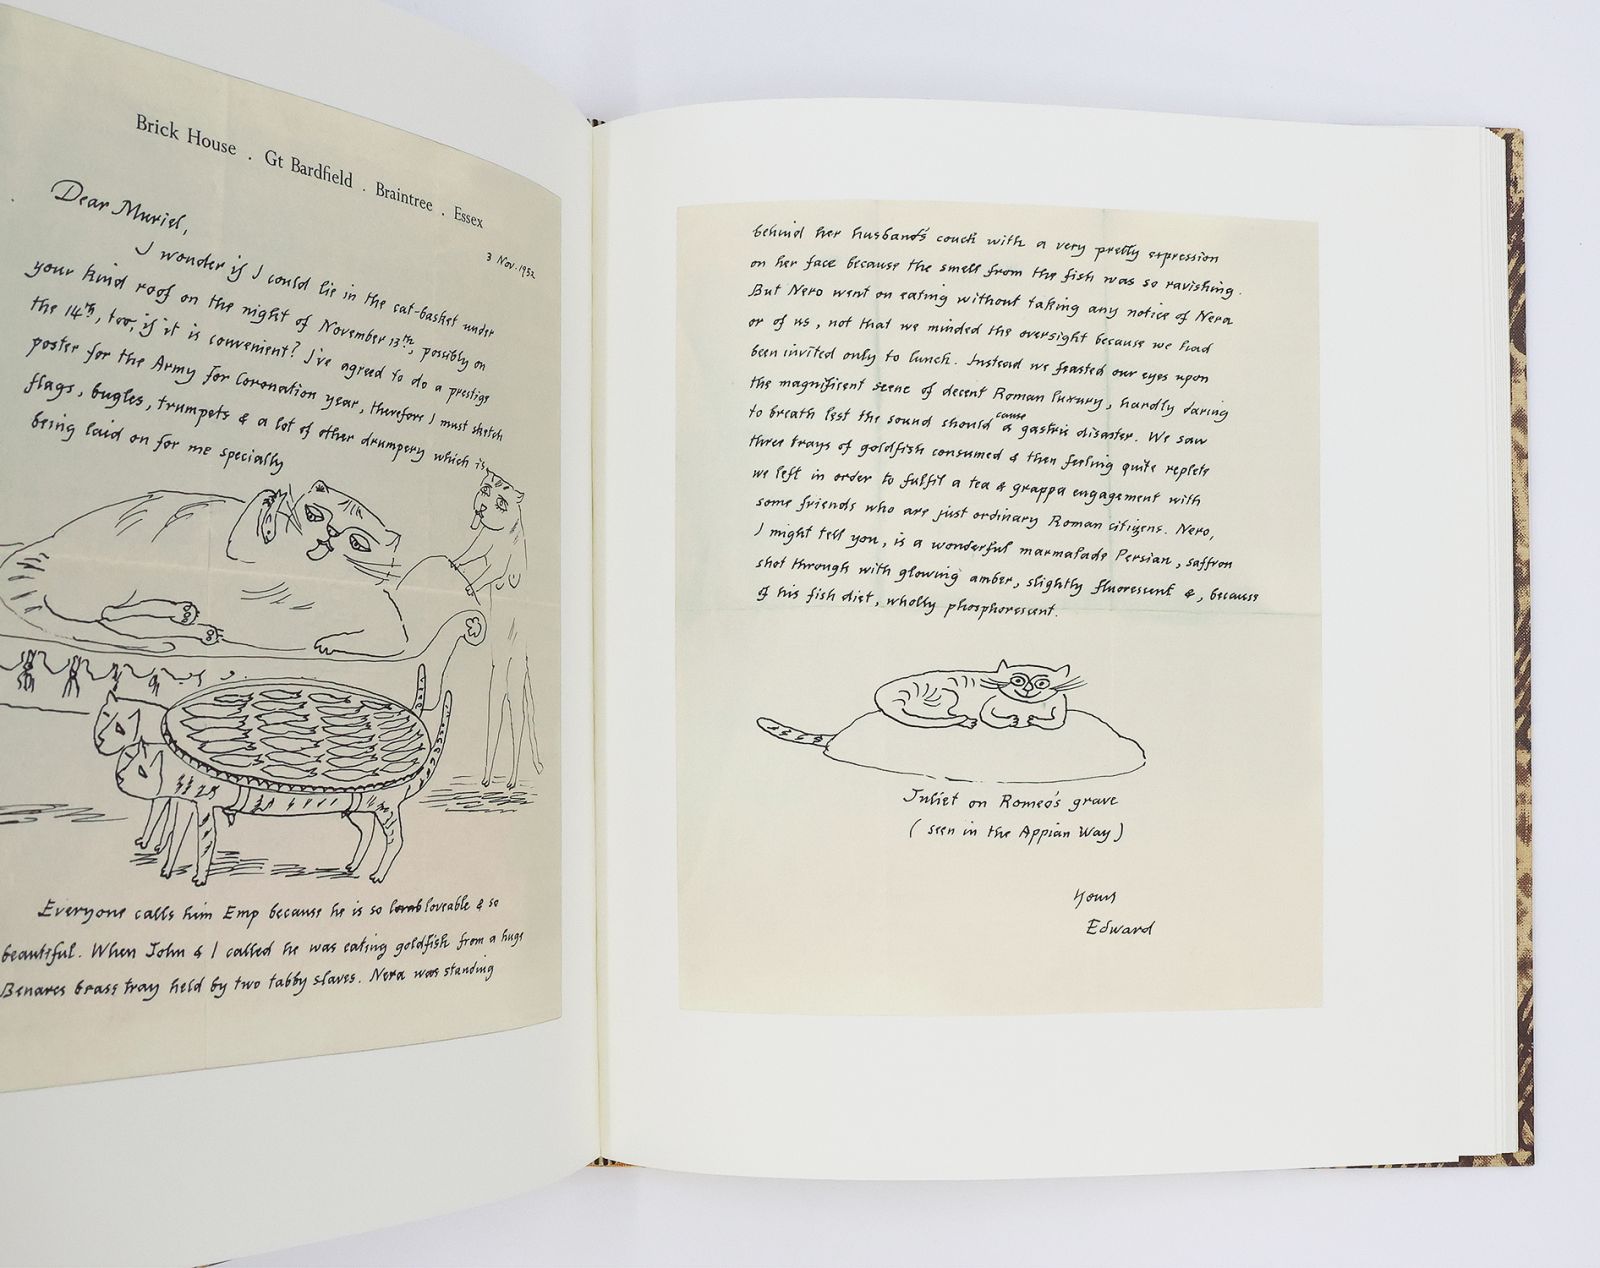 Brick House . Gt Bardfield . Braintree . Essex
3 Nov. 1952
Dear Muriel,
I wonder if I could lie in the cat-basket under
your kind roof on the night of November 13th, possibly on
the 14th, too, if it is convenient? I've agreed to do a prestige
poster for the Army for Coronation year, therefore I must sketch
flags, bugles, trumpets & a lot of other drumpery which is
being laid on for me specially
Everyone calls him Emp because he is so loveable & so
beautiful. When John & I called he was eating goldfish from a huge
Benares brass tray held by two tabby slaves. Nera was standing
behind her husband's couch with a very pretty expression
on her face because the smell from the fish was so ravishing.
But Nero went on eating without taking any notice of Nera
or of us, not that we minded the oversight because we had
been invited only to lunch. Instead we feasted our eyes upon
the magnificent scene of decent Roman luxury, hardly daring
to breath lest the sound should cause a gastric disaster. We saw
three trays of goldfish consumed & then feeling quite replete
we left in order to fulfil a tea & grappa engagement with
some friends who are just ordinary Roman citizens. Nero,
I might tell you, is a wonderful marmalade Persian, saffron
shot through with glowing amber, slightly fluorescent &, because
of his fish diet, wholly phosphorescent.
Juliet on Romeo's grave
(seen in the Appian Way)
Yours
Edward